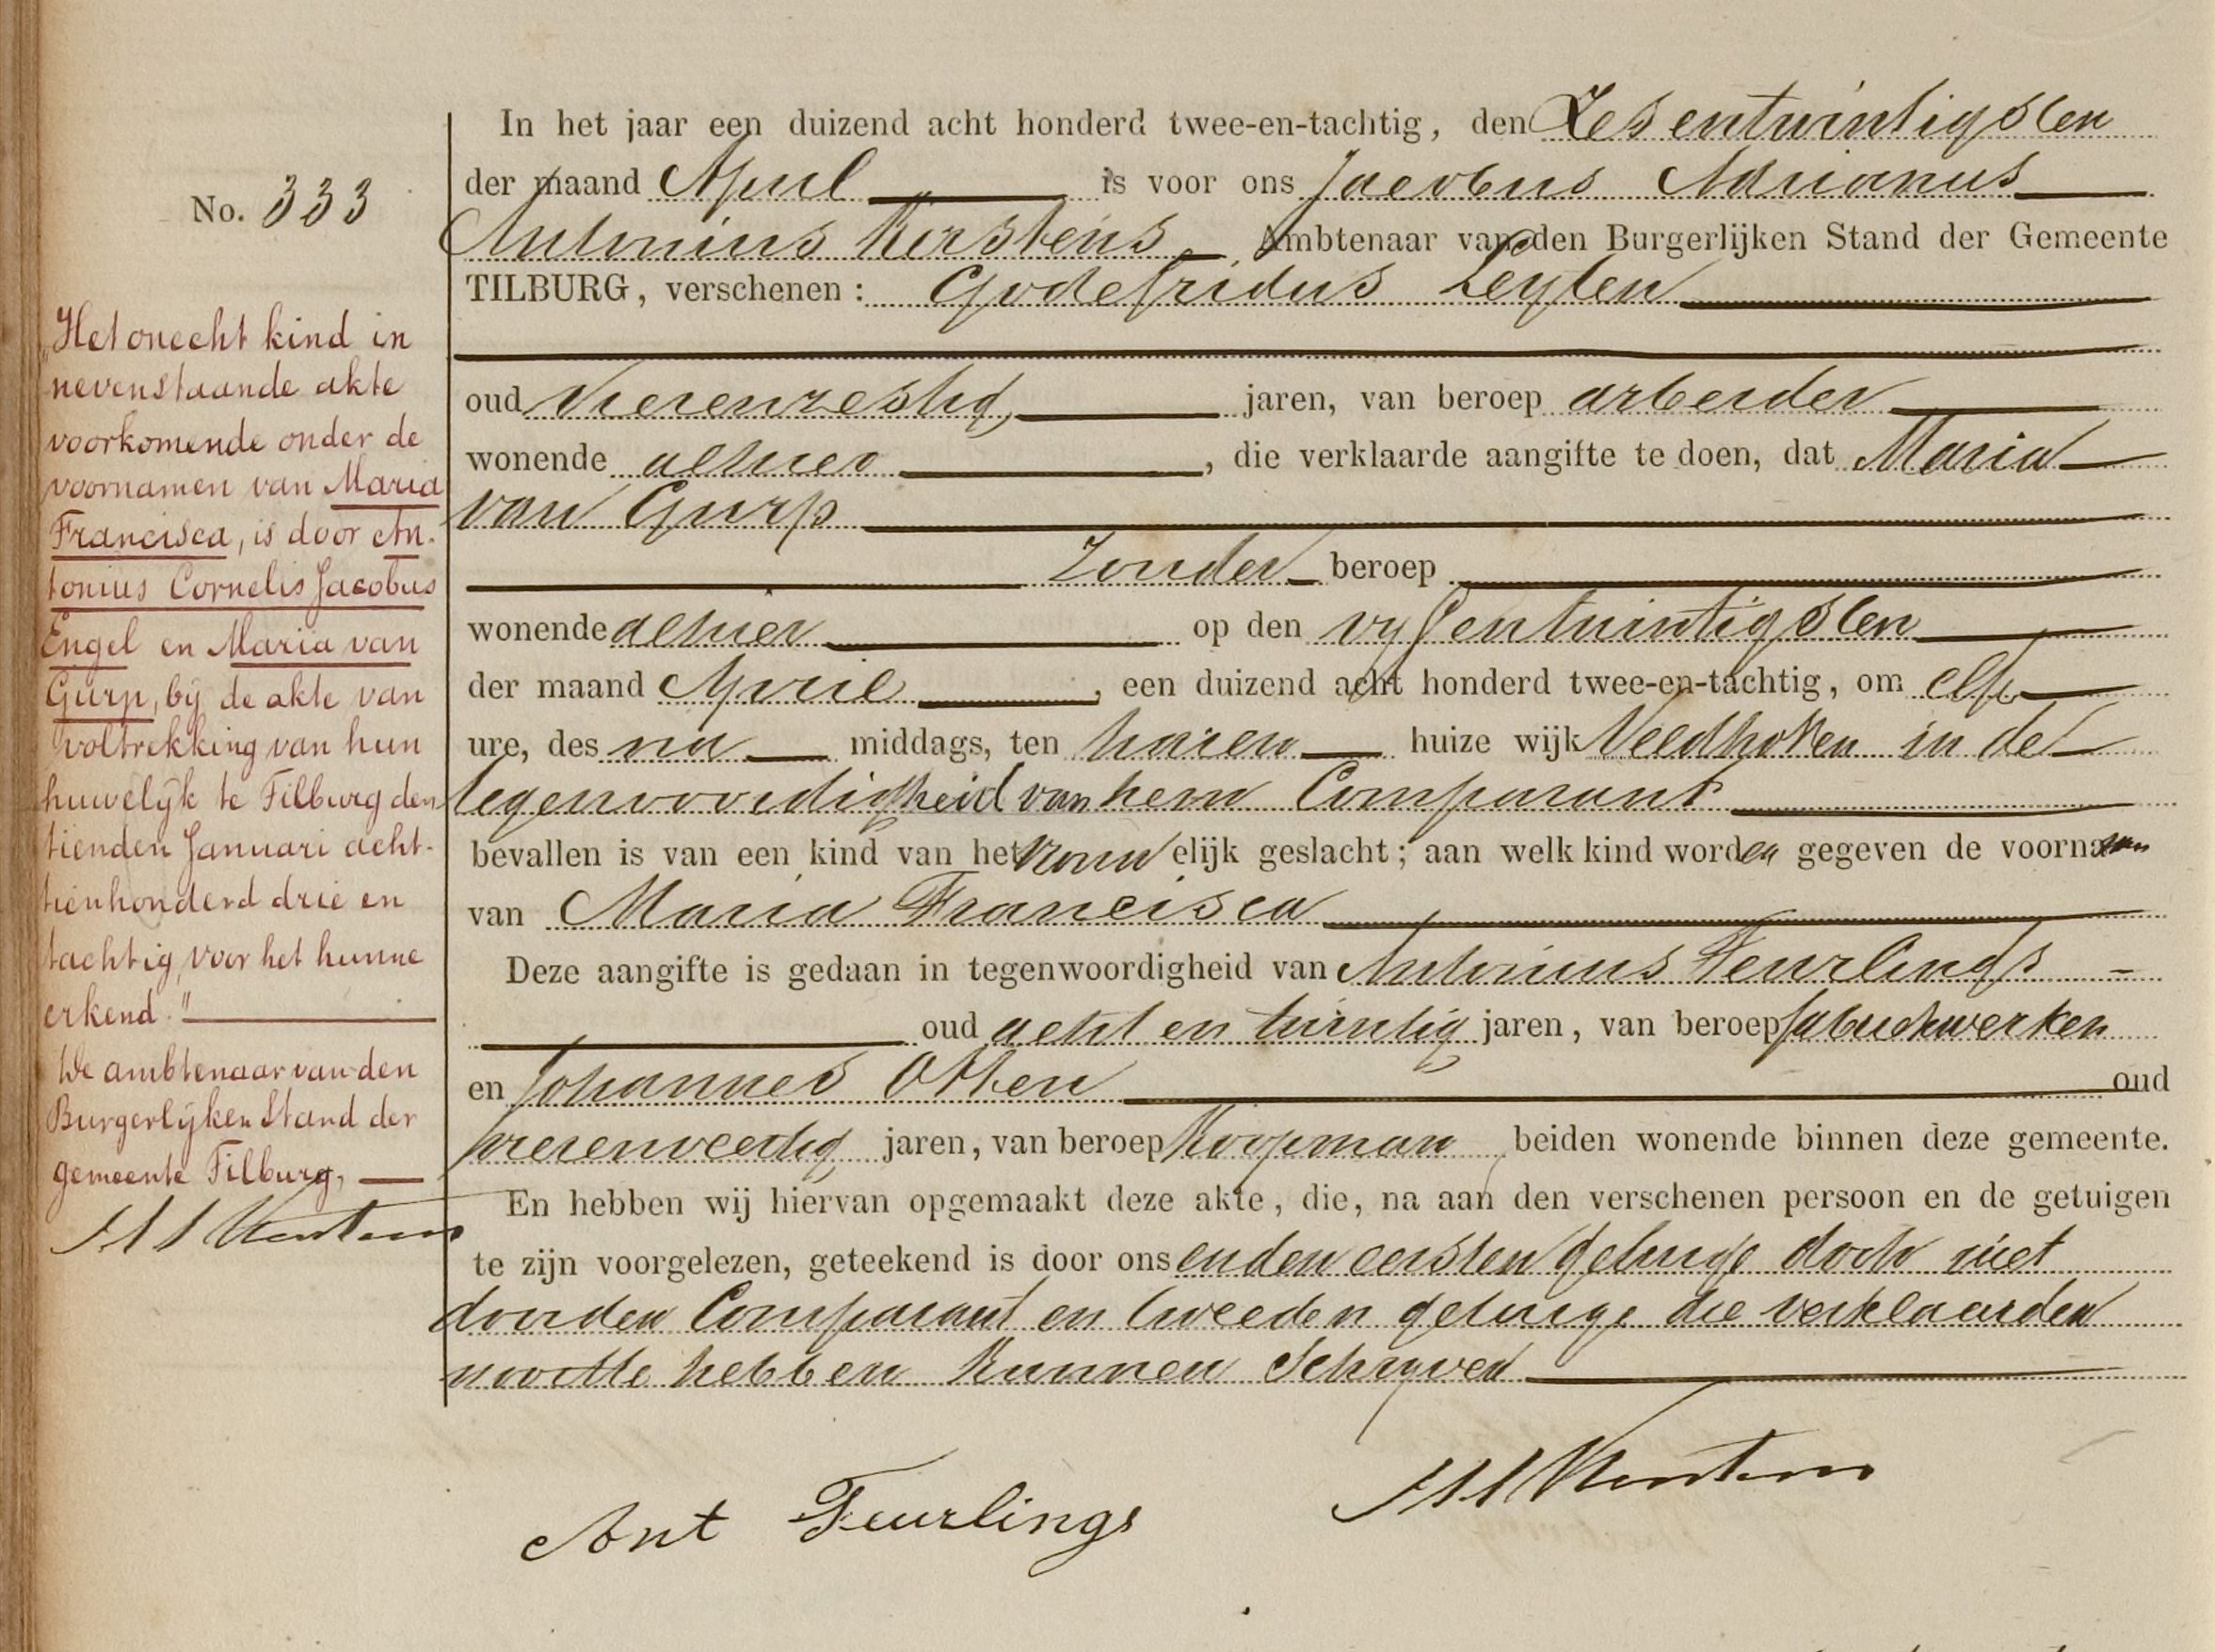 No. 333
"Het onecht kind in
nevenstaande akte
voorkomende onder de
voornamen van Maria
Francisca, is door An-
tonius Cornelis Jacobus
Engel en Maria van
Gurp, bij de akte van
voltrekking van hun
huwelijk te Tilburg den
tienden Januari acht-
tienhonderd drie en
tachtig, voor het hunne
erkend."
De ambtenaar van den
Burgerlijken Stand der
gemeente Tilburg,
In het jaar een duizend acht honderd twee-en-tachtig, den Zesentwintigsten
der maand April is voor ons Jacobus Adrianus
Antonius Kerstens, Ambtenaar van den Burgerlijken Stand der Gemeente
TILBURG, verschenen: Godefridus Leyten
oud Vierenzestig, jaren, van beroep arbeider
wonende alhier, die verklaarde aangifte te doen, dat Maria
van Gurp
Zonder beroep
wonende alhier op den vyfentwintigsten
der maand April, een duizend acht honderd twee-en-tachtig, om elf
ure, des na middags, ten haren huize wijk Veldhoven in de
tegenwoordigheid van hem Comparant
bevallen is van een kind van het vrouwelijk geslacht; aan welk kind worden gegeven de voornamen
van Maria Francisca
Deze aangifte is gedaan in tegenwoordigheid van Antonius Feurlings
oud acht en twintig jaren, van beroep fabriekwerker
en Johannes Otten oud
vierenveertig jaren, van beroep Koopman beiden wonende binnen deze gemeente.
En hebben wij hiervan opgemaakt deze akte, die, na aan den verschenen persoon en de getuigen
te zijn voorgelezen, geteekend is door ons en den eersten getuige doch niet
door den Comparant en tweeden getuige die verklaarden
nooitte hebben kunnen Schryven
Ant Feurlings